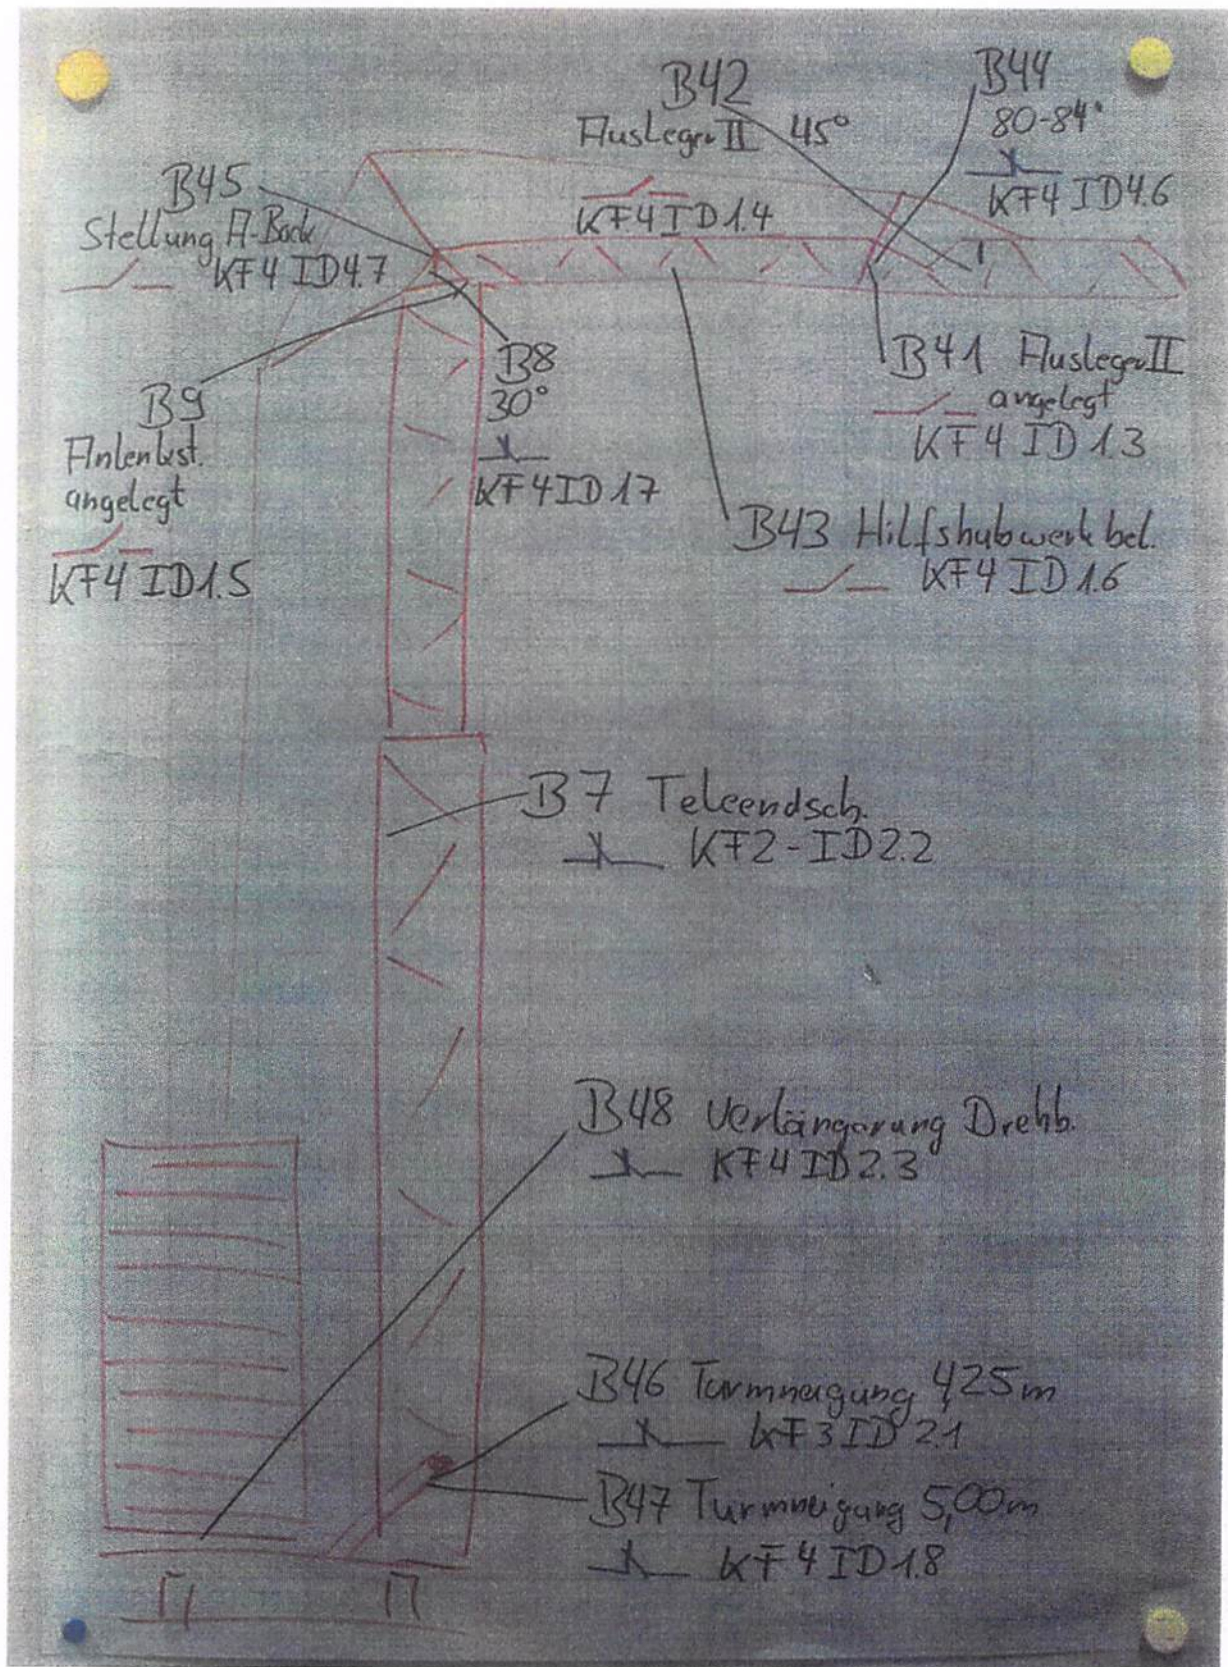 B42
Ausleger II 45°
KF4 ID1.4
B44
80-84°
KF4 ID4.6
B45
Stellung A-Bock
KF4 ID4.7
B9
Anlenkst.
angelegt
KF4 ID1.5
B8
30°
KF4 ID17
B41 Ausleger II
angelegt
KF4 ID1.3
B43 Hilfshubwerk bel.
KF4 ID1.6
B7 Teleendsch.
KF2-ID2.2
B48 Verlängerung Drehb.
KF4 ID2.3
B46 Turmneigung 4,25m
KF3 ID2.1
B47 Turmneigung 5,00m
KF4 ID1.8